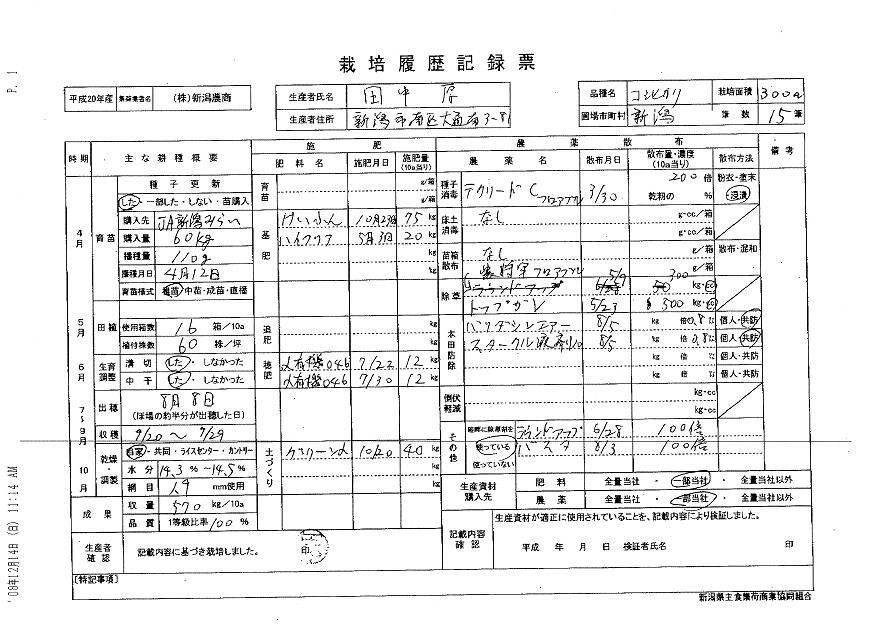 P. 1
栽培履歴記録票
平成20年産 集荷業者名 (株)新潟農商
生産者氏名 田中 厚
生産者住所 新潟市南区大通南3-81
品種名 コシヒカリ 栽培面積 300a
圃場市町村 新潟 筆数 15筆
時期 主な耕種概要 施肥 農薬散布 備考
肥料名 施肥月日 施肥量(10a当り) 農薬名 散布月日 散布量・濃度(10a当り) 散布方法
4月 育苗
種子更新
した・一部した・しない・苗購入
購入先 JA新潟みらい
購入量 60kg
播種量 110g
播種月日 4月12日
育苗様式 稚苗・中苗・成苗・直播
育苗 g/箱
g/箱
基肥 けいふん 10月23日 75 kg
ハイクリア 5月3日 20 kg
kg
kg
種子消毒 テクリードCフロアブル 3/30 200倍 粉衣・塗末
乾籾の % ・浸漬
床土消毒 なし g・cc/箱
g・cc/箱
苗箱散布 なし g/箱 散布・混和
g/箱
除草 フロアブル 5/9 300 kg・cc
ラウンドアップ
トップガン 5/23 500 kg・cc
5月 田植 使用箱数 16 箱/10a
植付株数 60 株/坪
追肥 kg
kg
本田防除 バリダシンエアー 8/5 kg 倍 0.8㍑ 個人・共防
スタークル液剤10 8/5 kg 倍 0.8㍑ 個人・共防
kg 倍 ㍑ 個人・共防
kg 倍 ㍑ 個人・共防
6月 生育調整 溝切 した・しなかった
中干 した・しなかった
穂肥 有機046 7/22 12 kg
有機046 7/30 12 kg
7~9月 出穂 8月8日
(ほ場の約半分が出穂した日)
収穫 9/20~9/29
倒伏軽減 kg・cc
kg・cc
その他 畦畔に除草剤を ラウンドアップ 6/28 100倍
使っている バスタ 8/3 100倍
使っていない
10月 乾燥・調製 自家・共同・ライスセンター・カントリー
水分 14.3%~14.5%
網目 1.9 mm使用
土づくり 10/20 40 kg
kg
kg
成果 収量 570 kg/10a
品質 1等級比率 100%
生産資材購入先 肥料 全量当社・一部当社・全量当社以外
農薬 全量当社・一部当社・全量当社以外
生産者確認 記載内容に基づき栽培しました。 印
記載内容確認 生産資材が適正に使用されていることを、記載内容により検証しました。
平成 年 月 日 検証者氏名 印
[特記事項]
新潟県主食集荷商業協同組合
'08年12月14日(日) 11:14 AM